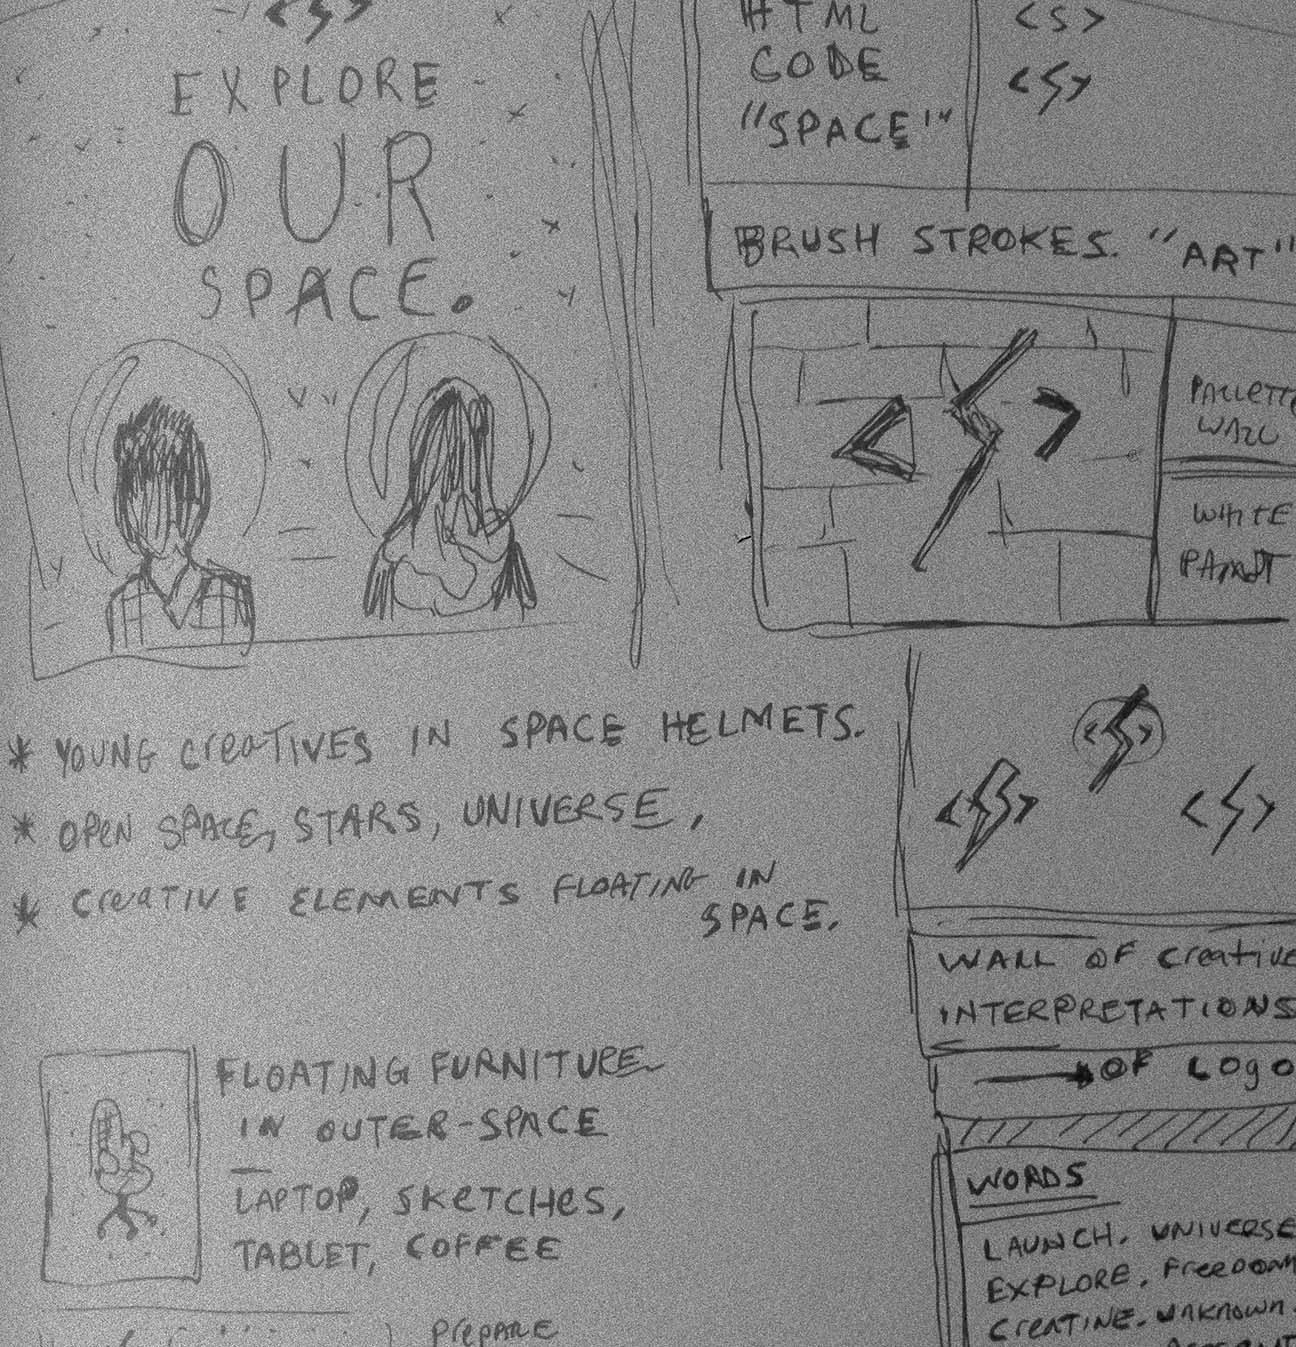 <S>
EXPLORE
OUR
SPACE.
* YOUNG CreaTIVES IN SPACE HELMETS.
* OPEN SPACE, STARS, UNIVERSE,
* CreaTIVE ELEMENTS FLOATING IN
SPACE.
FLOATING FURNITURE
IN OUTER-SPACE
LAPTOP, SKETCHES,
TABLET, COFFEE
PrePARE
HTML
CODE
"SPACE"
<S>
<S>
BRUSH STROKES. "ART"
<S>
PALLETTE
WALL
WHITE
PAINT
<S>
<S>
<S>
WALL OF Creative
INTERPRETATIONS
OF LOgO
WORDS
LAUNCH. UNIVERSE
EXPLORE. FreeDOM
CreATINE. UNKNOWN.